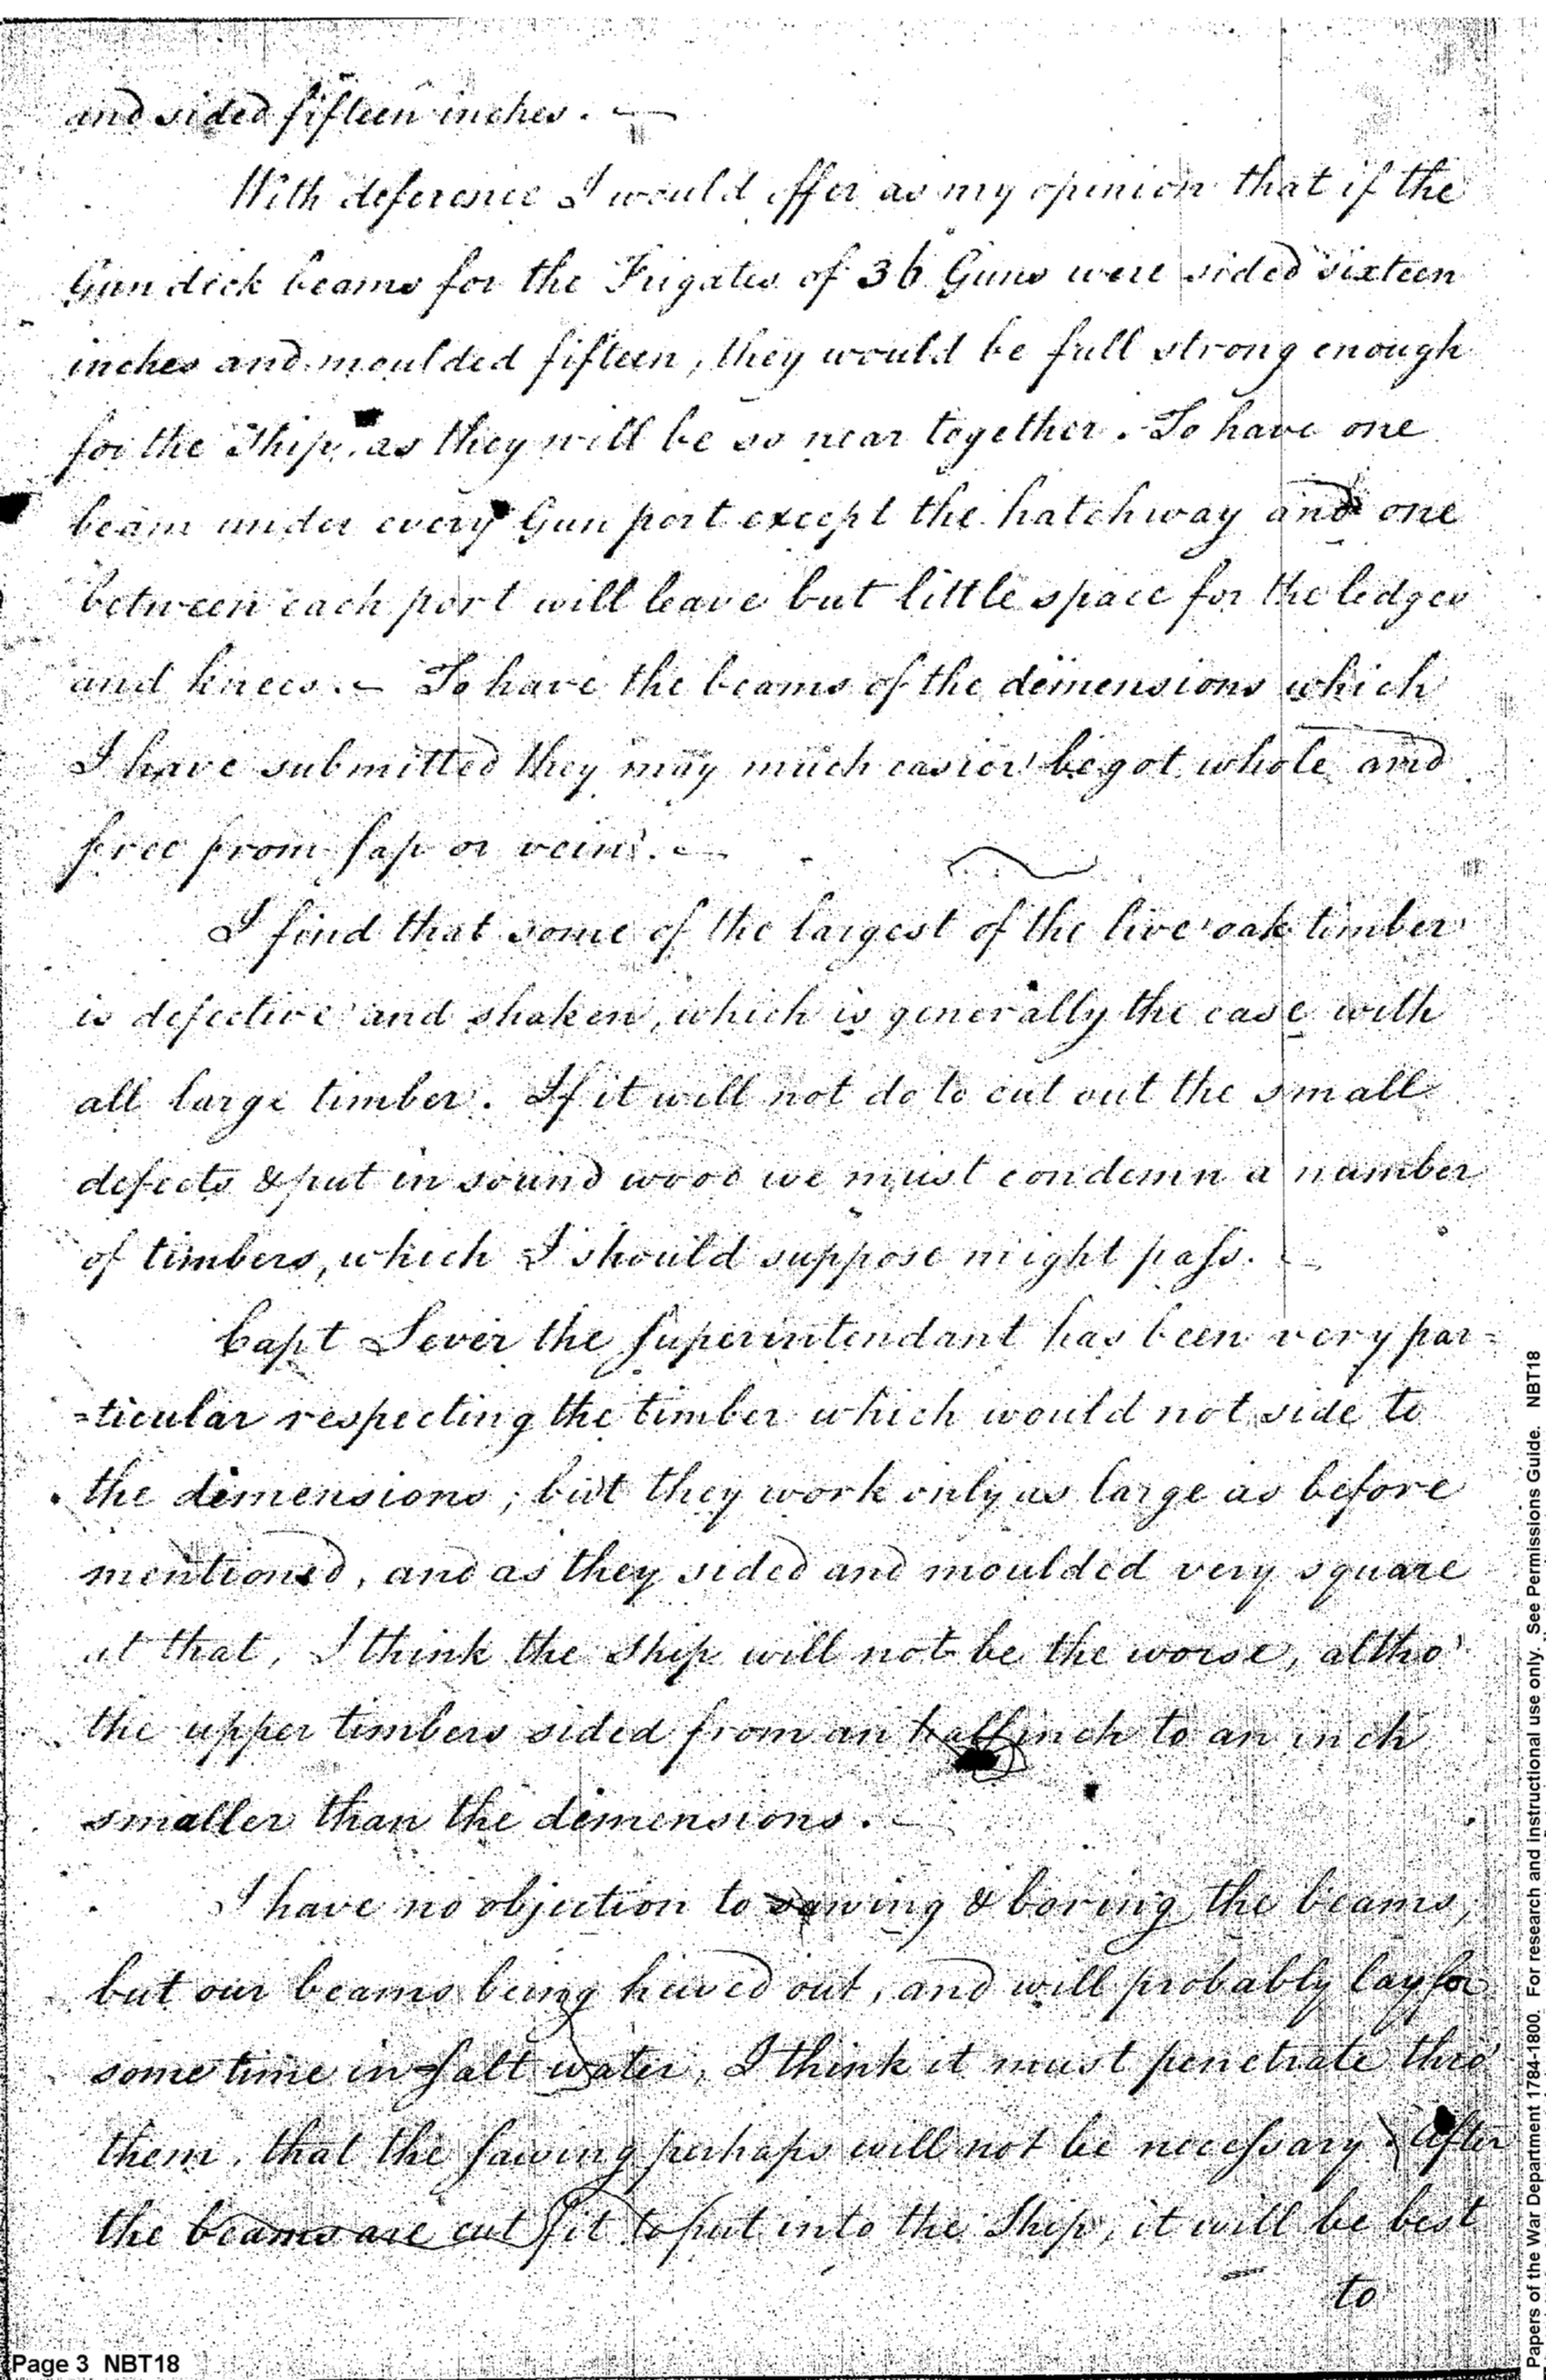 and sided fifteen inches. —
With deference I would offer as my opinion that if the
Gun deck beams for the Frigates of 36 Guns were sided sixteen
inches and moulded fifteen, they would be full strong enough
for the Ship, as they will be so near together. To have one
beam under every Gun port except the hatchway and one
between each port will leave but little space for the ledges
and knees. — To have the beams of the demensions which
I have submitted they may much easier be got whole and
free from sap or vein. —
I find that some of the largest of the live oak timber
is defective and shaken, which is generally the case with
all large timber. If it will not do to cut out the small
defects & put in sound wood we must condemn a number
of timbers, which I should suppose might pass. —
Capt Sever the Superintendant has been very par=
=ticular respecting the timber which would not side to
the demensions; but they work only as large as before
mentioned, and as they sided and moulded very square
at that, I think the Ship will not be the worse, altho'
the upper timbers sided from an half inch to an inch
smaller than the demensions. —
I have no objection to sawing & boring the beams,
but our beams being hewed out, and will probably lay for
some time in salt water, I think it must penetrate thro
them, that the sawing perhaps will not be necessary. After
the beams are cut fit to put into the Ship, it will be best
to
Page 3 NBT18
Papers of the War Department 1784-1800. For research and instructional use only. See Permissions Guide. NBT18